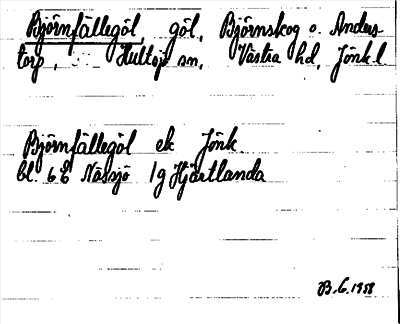 Björnfällegöl, göl, Björnskog o. Anders-
torp, Hultsjö sn, Västra hd, Jönk. l
Björnfällegöl ek Jönk.
bl. 6 E Nässjö 1g Hjärtlanda
B.G. 1958